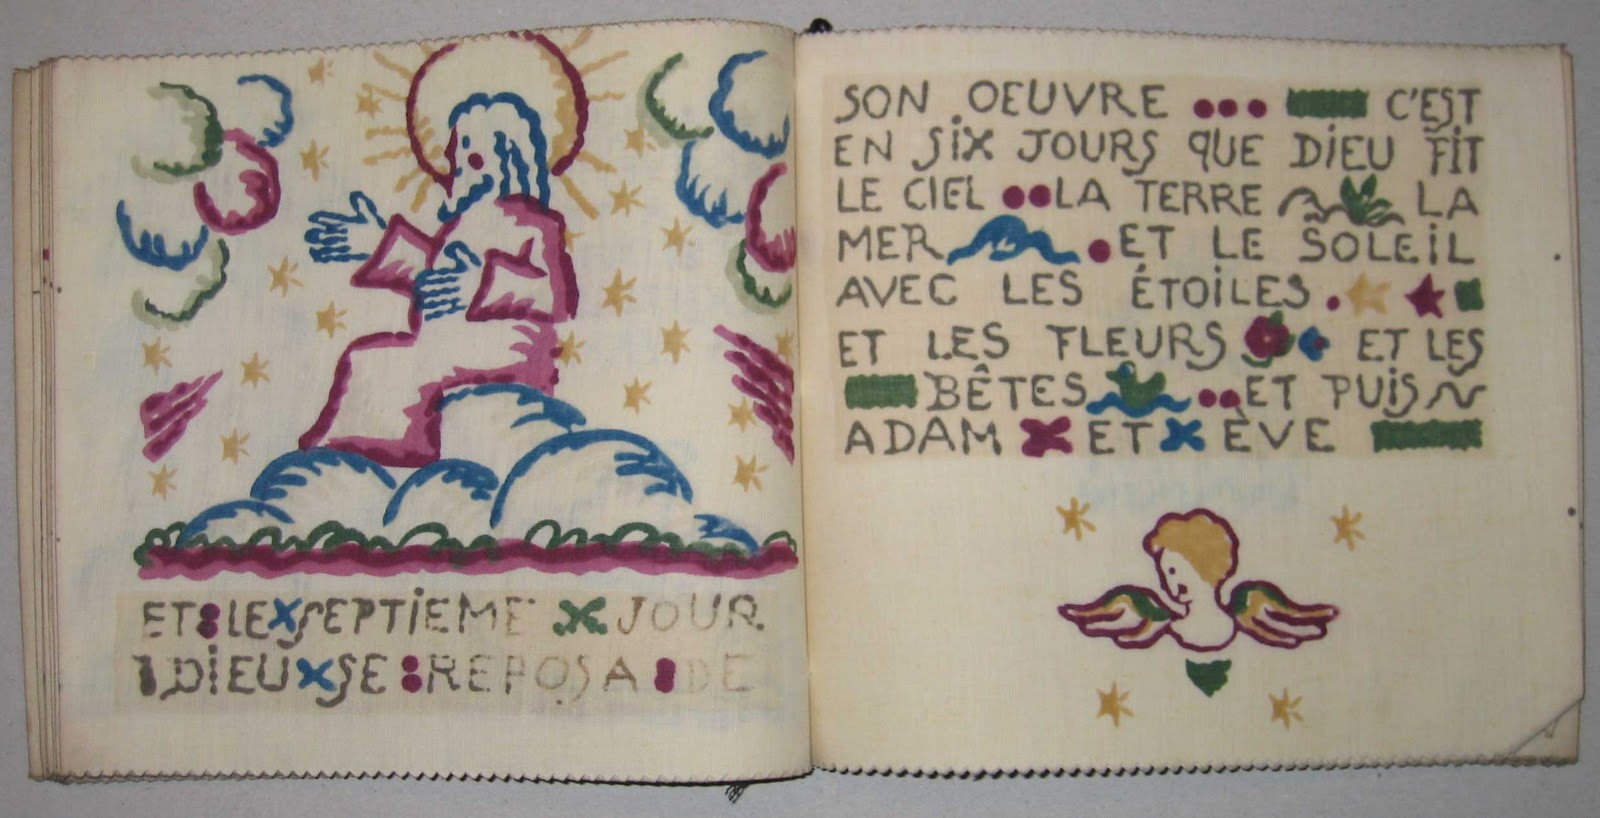 ET LE SEPTIEME JOUR
DIEU SE REPOSA DE
SON OEUVRE ... C'EST
EN SIX JOURS QUE DIEU FIT
LE CIEL .. LA TERRE LA
MER . ET LE SOLEIL
AVEC LES ÉTOILES .
ET LES FLEURS ET LES
BÊTES .. ET PUIS
ADAM ET ÈVE